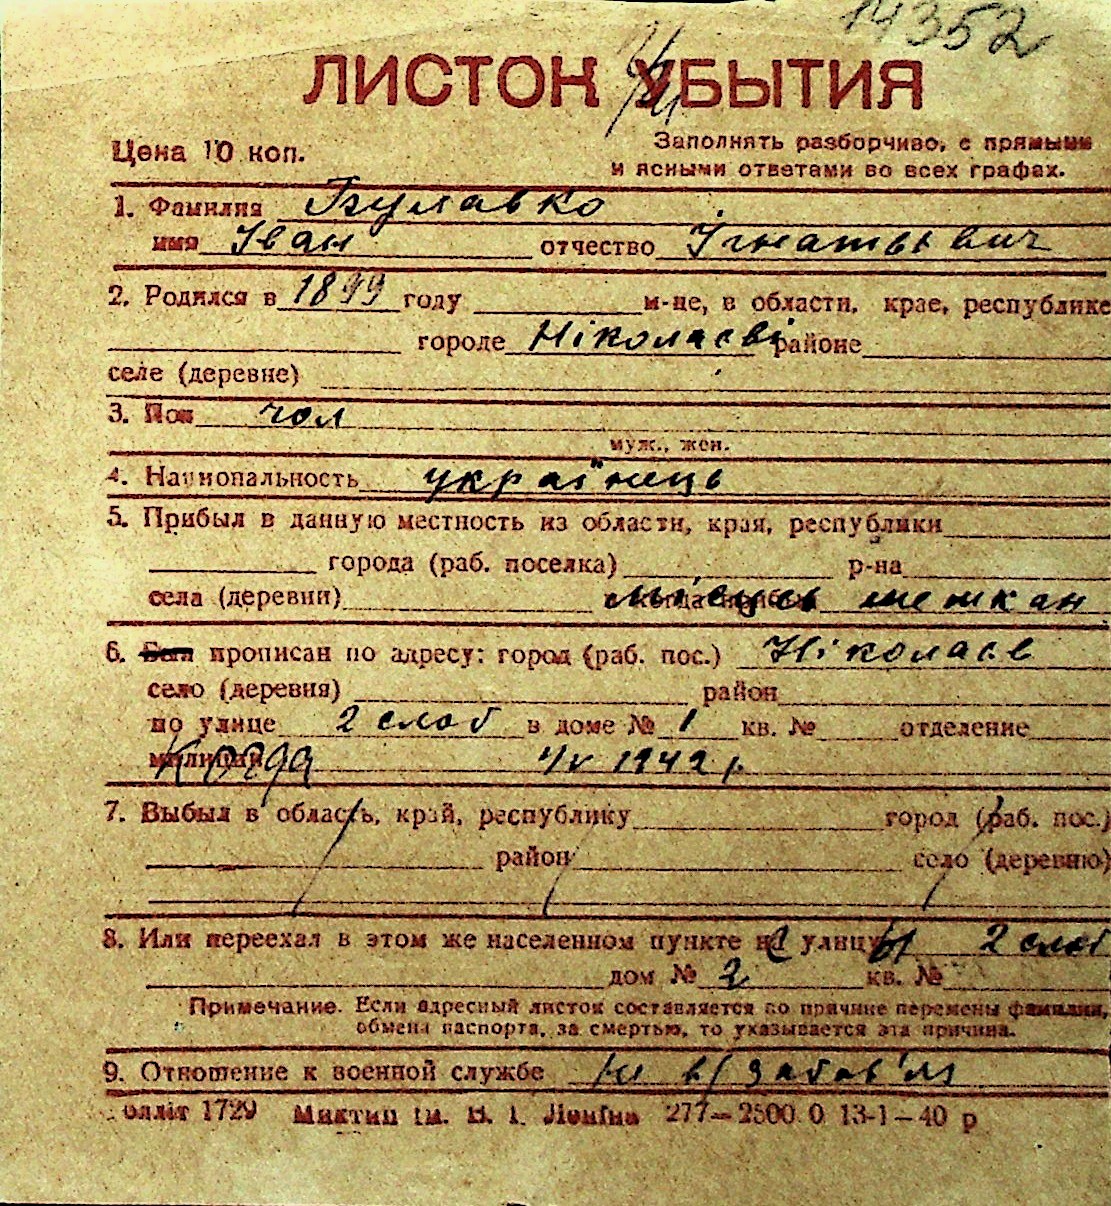 14352
ЛИСТОК УБЫТИЯ
Цена 10 коп.
Заполнять разборчиво, с прямыми
и ясными ответами во всех графах.
1. Фамилия Булавко
имя Іван отчество Ігнатьевич
2. Родился в 1899 году м-це, в области, крае, республике
городе Ніколаєві районе
селе (деревне)
3. Пол чол
муж., жен.
4. Национальность українець
5. Прибыл в данную местность из области, края, республики
города (раб. поселка) р-на
села (деревни) місцев мешкан
6. Был прописан по адресу: город (раб. пос.) Ніколаєв
село (деревня) район
по улице 2 слоб в доме № 1 кв. № отделение
милиции Когда 1/V 1942 р.
7. Выбыл в область, край, республику город (раб. пос.)
район село (деревню)
8. Или переехал в этом же населенном пункте улицу 2 слоб
дом № 2 кв. №
Примечание. Если адресный листок составляется по причине перемены фамилии,
обмена паспорта, за смертью, то указывается эта причина.
9. Отношение к военной службе
1729 Миктип ім. В. І. Леніна 277—2500 0 13-1—40 р